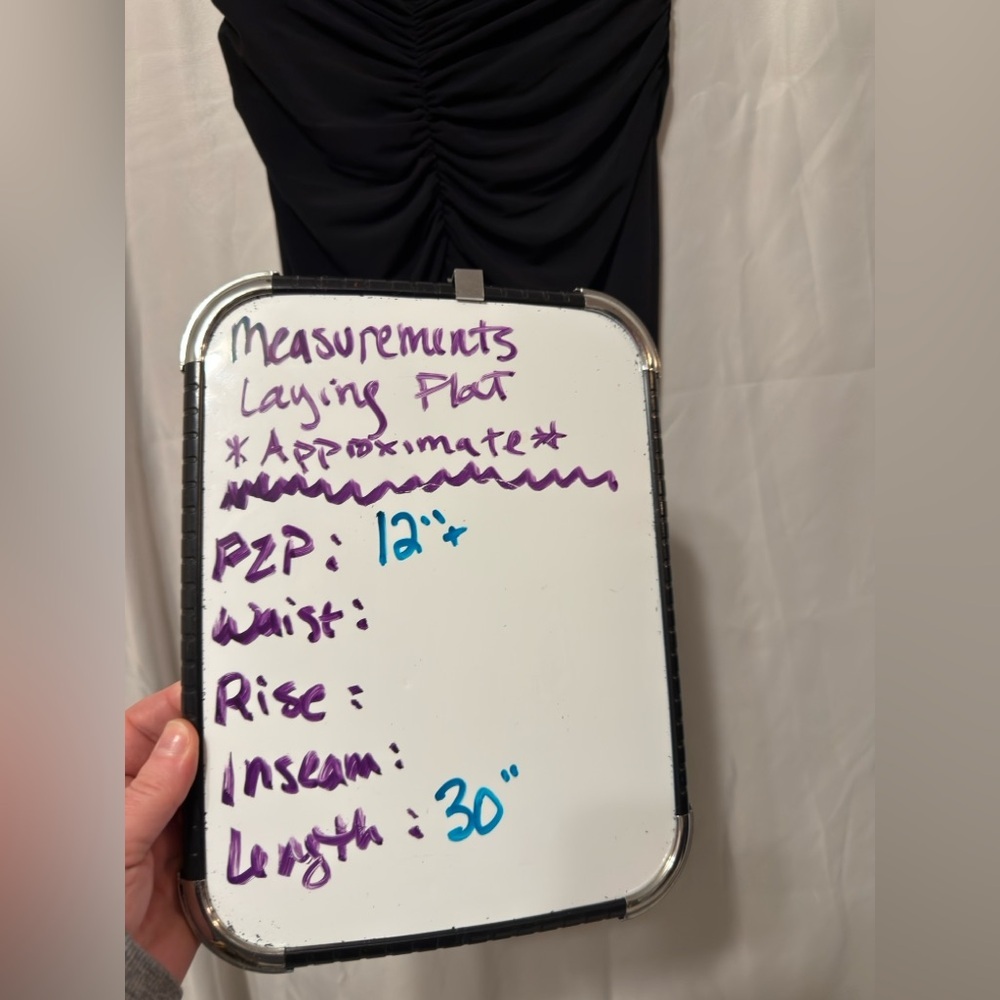 Measurements
Laying Flat
*Approximate*
P2P: 12"+
Waist:
Rise:
Inseam:
Length: 30"